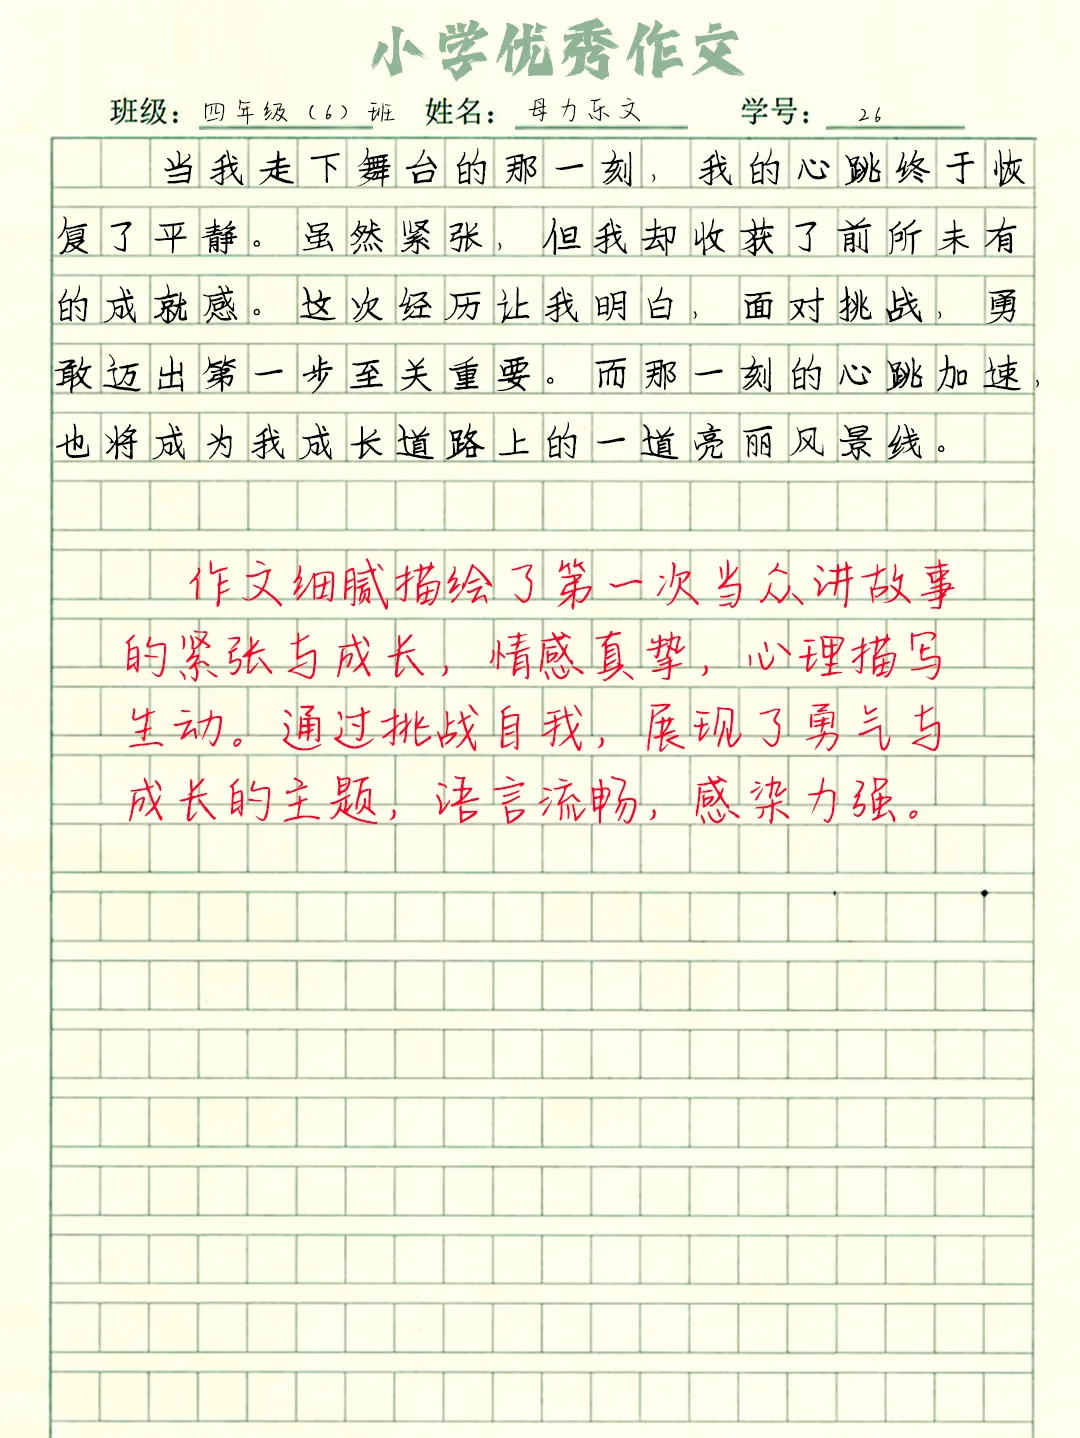 小学优秀作文
班级：四年级（6）班 姓名：母力乐文 学号：26
当我走下舞台的那一刻，我的心跳终于恢
复了平静。虽然紧张，但我却收获了前所未有
的成就感。这次经历让我明白，面对挑战，勇
敢迈出第一步至关重要。而那一刻的心跳加速，
也将成为我成长道路上的一道亮丽风景线。
作文细腻描绘了第一次当众讲故事
的紧张与成长，情感真挚，心理描写
生动。通过挑战自我，展现了勇气与
成长的主题，语言流畅，感染力强。